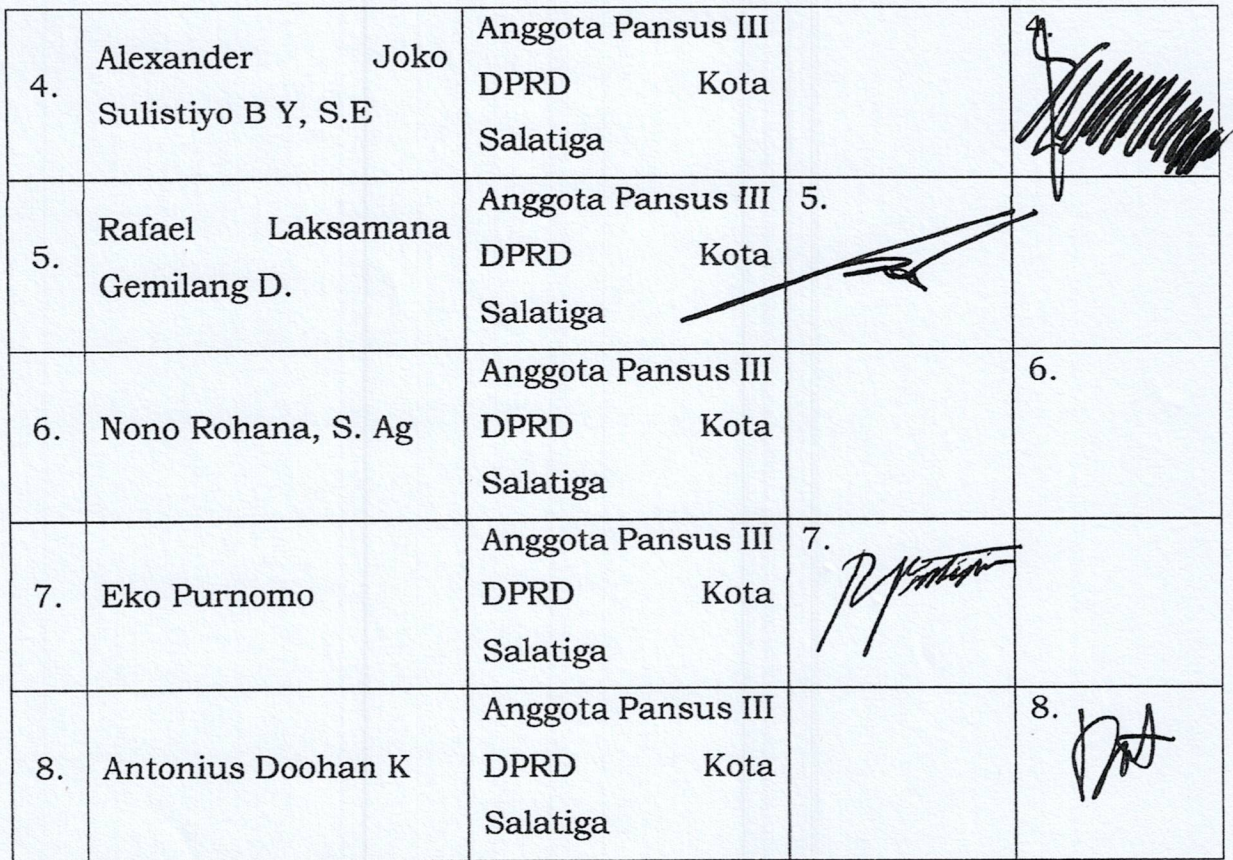 4.
Alexander Joko
Sulistiyo B Y, S.E
Anggota Pansus III
DPRD Kota
Salatiga
4.
5.
Rafael Laksamana
Gemilang D.
Anggota Pansus III
DPRD Kota
Salatiga
5.
6.
Nono Rohana, S. Ag
Anggota Pansus III
DPRD Kota
Salatiga
6.
7.
Eko Purnomo
Anggota Pansus III
DPRD Kota
Salatiga
7.
8.
Antonius Doohan K
Anggota Pansus III
DPRD Kota
Salatiga
8.